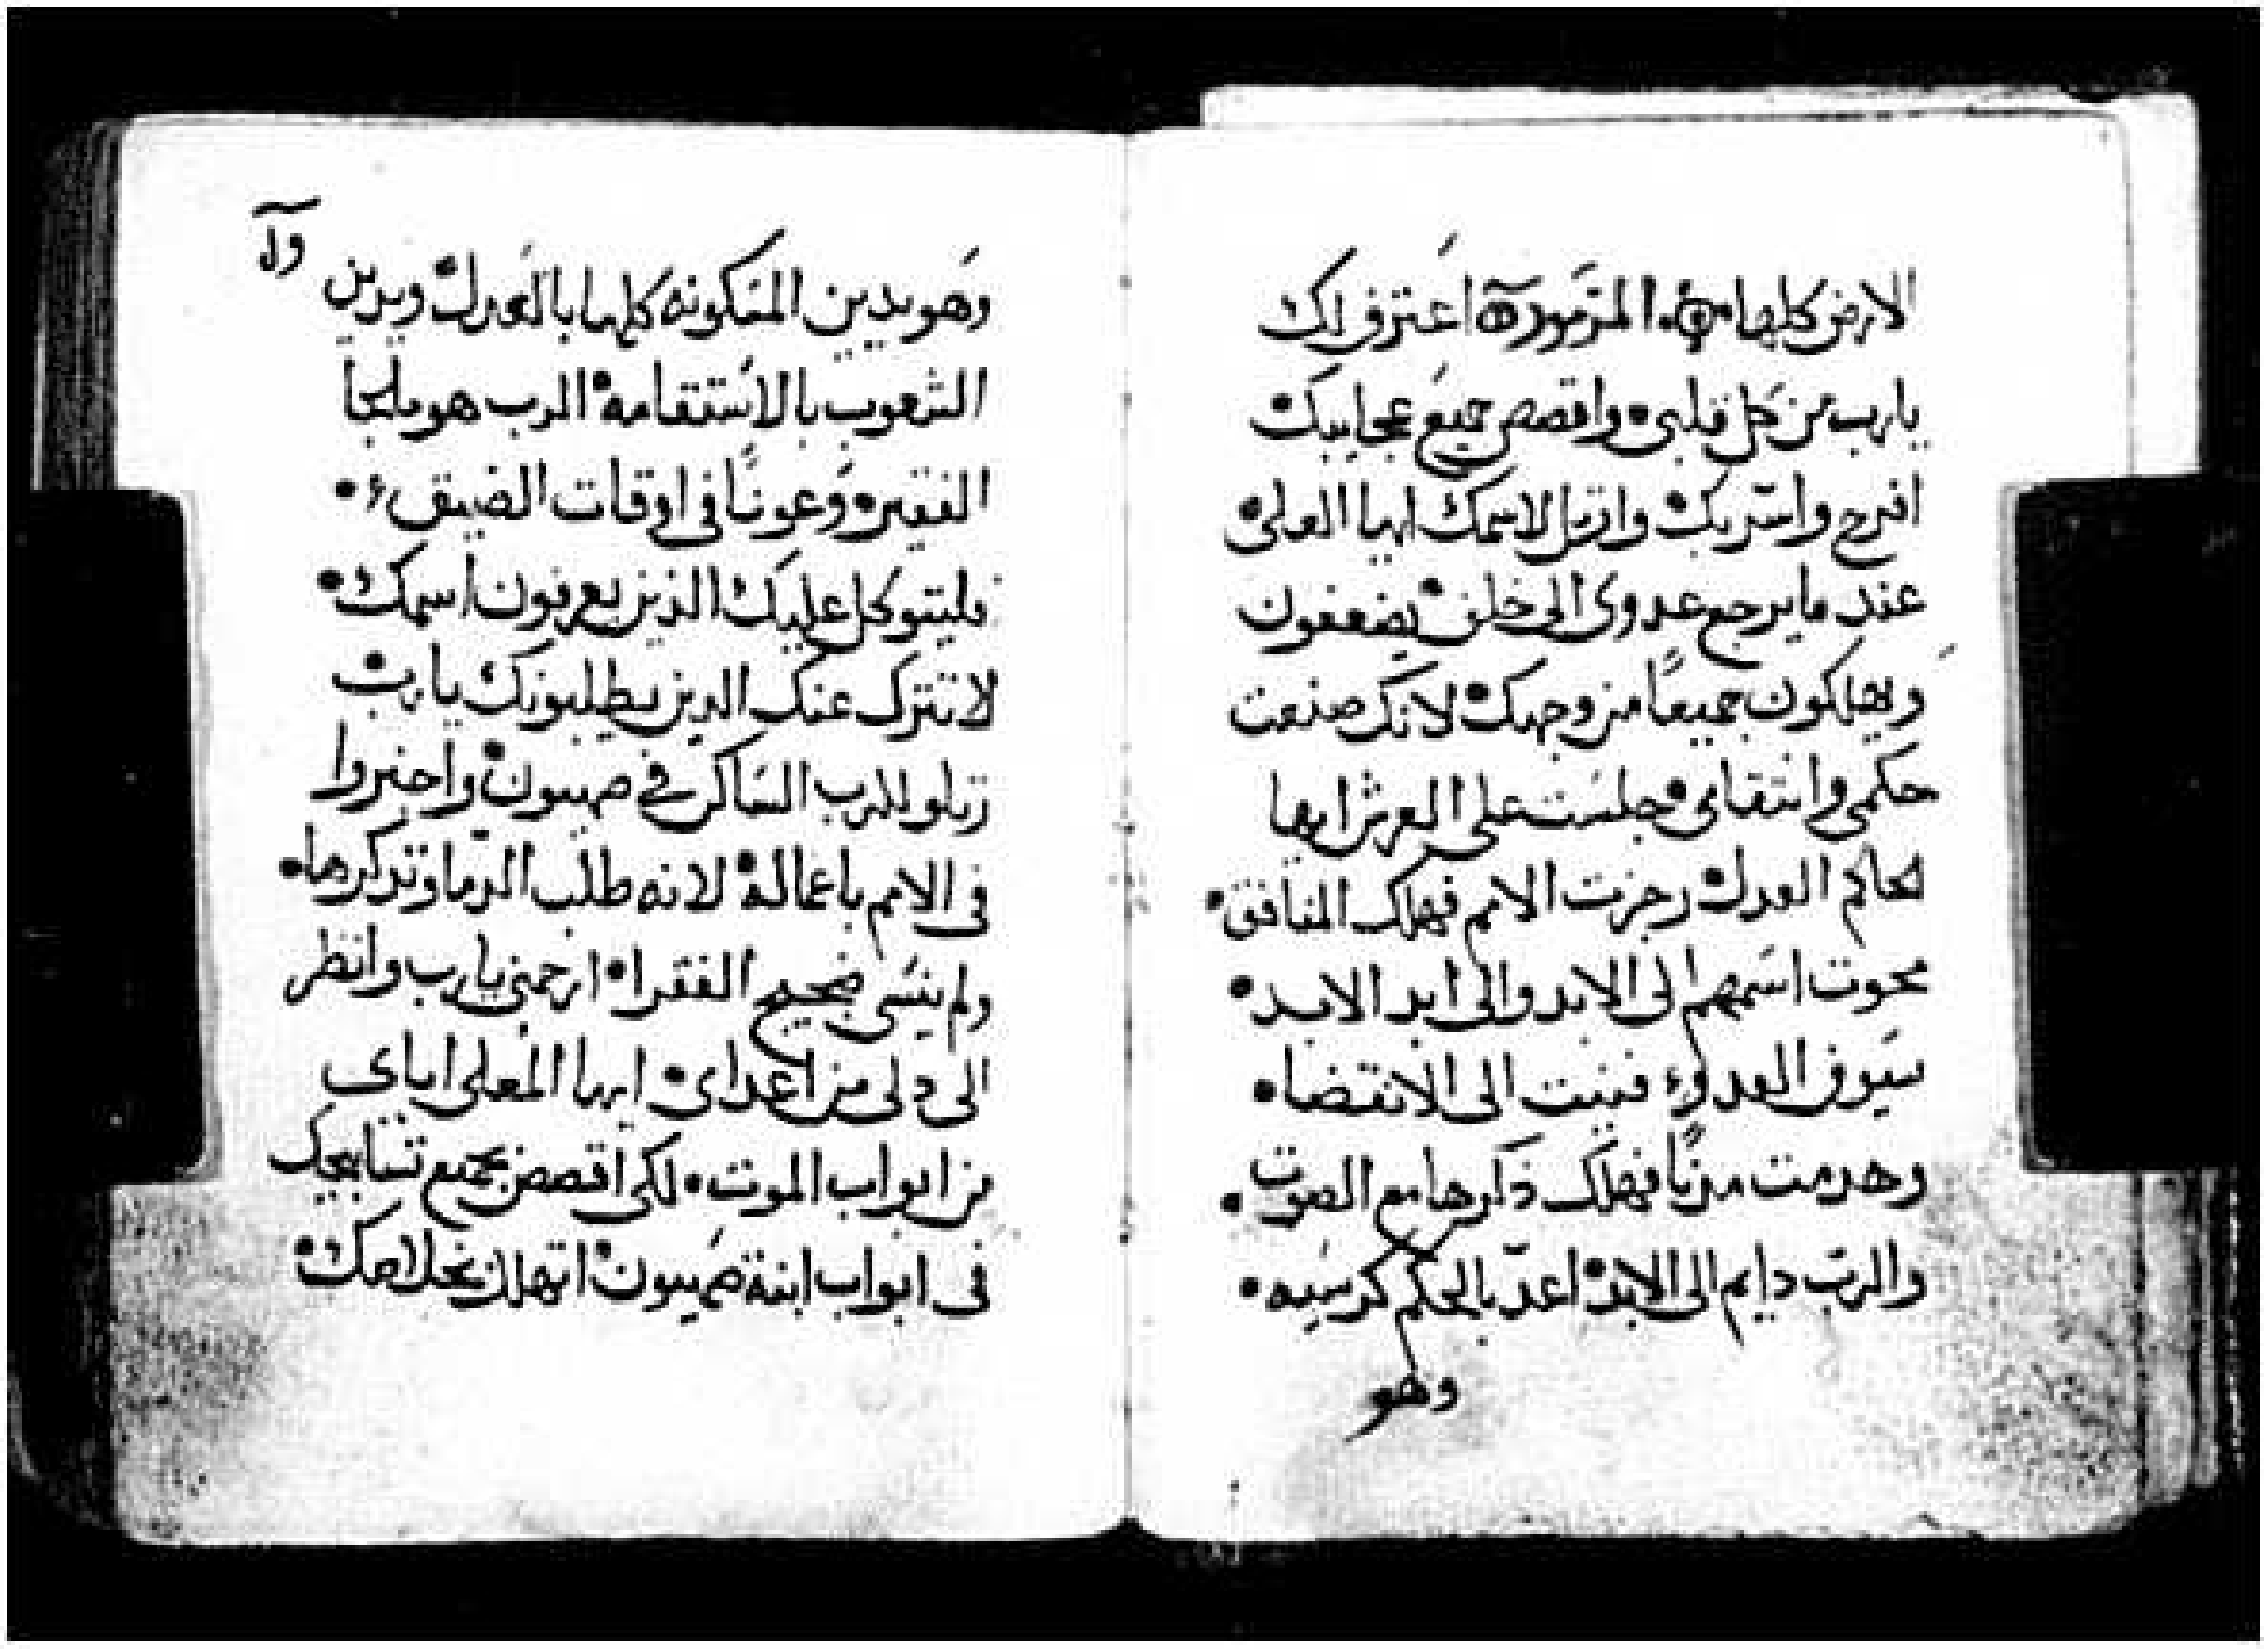 الارض كلها ۞ المزمور ه اعترف لك
يارب من كل قلبي• واقصص جميع عجايبك•
افرح واسّر بك• وارتل لاسمك ايها العلى•
عند ما يرجع عدوى الى خلف• يضعفون
ويهلكون جميعًا من وجهك• لانك صنعت
حكمي وانتقامى• جلست على العرش ايها
الحاكم العدل• زجرت الامم فهلك المنافق•
محوت اسمهم الى الابد والى ابد الابد•
سيوف العدو• فنيت الى الانقضا•
وهدمت مدنًا فهلك ذكرها مع الصوت•
والربّ دايم الى الابد• اعدّ بالحكم كرسيه•
وهو
ولا
وهو يدين المسكونه كلها بالعدل• ويدين
الشعوب بالاستقامه• الرب هو ملجا
الفقير• وعونًا فى اوقات الضيق•
فليتوكل عليك الذين يعرفون اسمك•
لا تترك عنك الدين يطلبونك يا رب•
رتلو للرب الساكن في صهيون• واخبروا
فى الامم باعماله• لانه طلب الدما وتذكرها•
ولم ينسى ضجيج الفقرا• ارحمني يا رب وانظر
الى دلى من اعداى• ايها المعلى اياى
من ابواب الموت• لكى اقصص بجميع تسابيحك
فى ابواب ابنة صهيون• اتهلل بخلاصك•